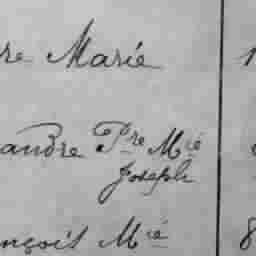 re Marie 1
andre Pre Mié
Joseph
nçois Mié 8